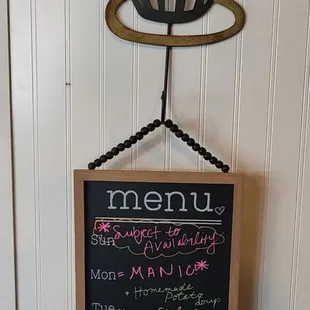 menu
*Subject to
Sun Availability
Mon= MANICI*
+ Homemade
Potato
Soup
Tues